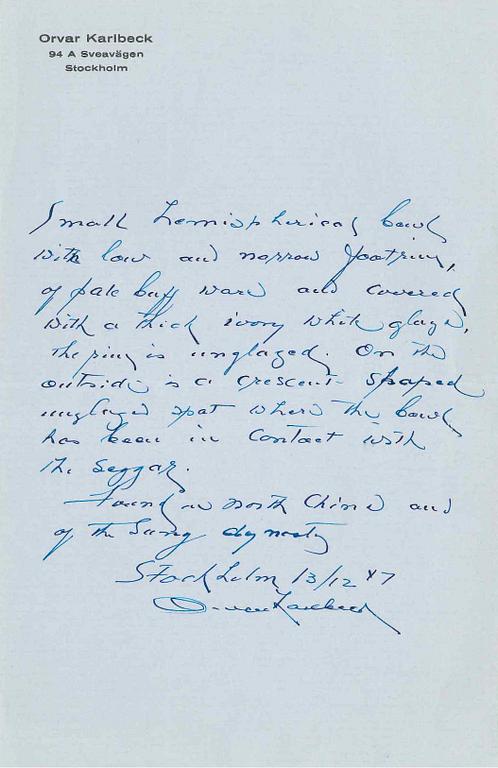 Orvar Karlbeck
94 A Sveavägen
Stockholm
Small hemispherical bowl
with low and narrow footring,
of pale buff ware and covered
with a thick ivory white glaze,
the ring is unglazed. On the
outside is a crescent-shaped
unglazed spot where the bowl
has been in contact with
the seggar.
Found in north China and
of the Sung dynasty
Stockholm 13/12 47
Orvar Karlbeck